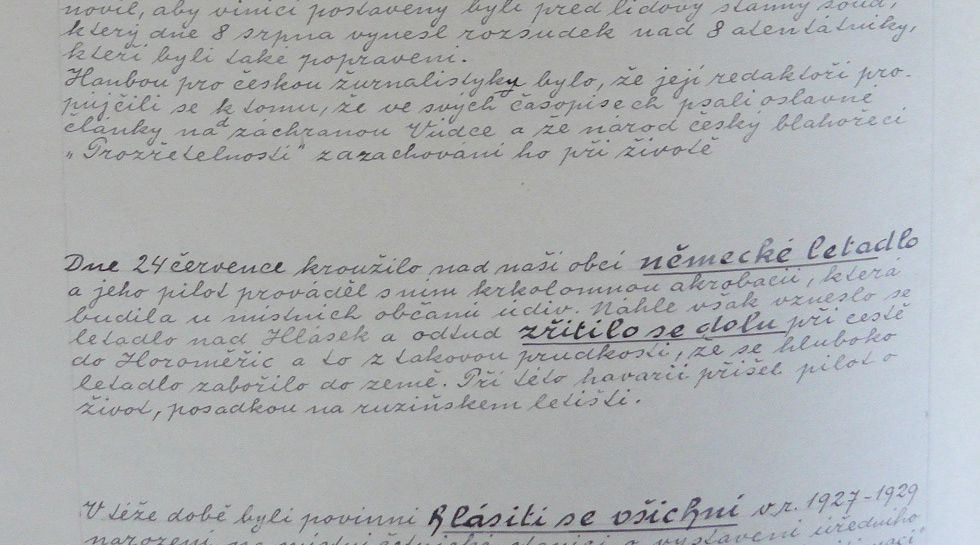 novil, aby viníci postaveny byli před lidový stanný soud,
který dne 8 srpna vynesl rozsudek nad 8 atentátníky,
kteří byli také popraveni.
Hanbou pro českou žurnalistyky bylo, že její redaktoři pro-
půjčili se k tomu, že ve svých časopisech psali oslavné
články nad záchranou Vůdce a že národ český blahořečí
"Prozřetelnosti" zazachování ho při životě
Dne 24 července kroužilo nad naší obcí německé letadlo
a jeho pilot prováděl s ním krkolomnou akrobacii, která
budila u místních občanů údiv. Náhle však vzneslo se
letadlo nad Hlásek a odtud zřítilo se dolu při cestě
do Horoměřic a to z takovou prudkostí, že se hluboko
letadlo zabořilo do země. Při této havarii přišel pilot o
život, posádkou na ruzińském letišti.
V téže době byli povinni hlásiti se všichni v r. 1927-1929
narození na místní četnické stanici o vystavení úředního